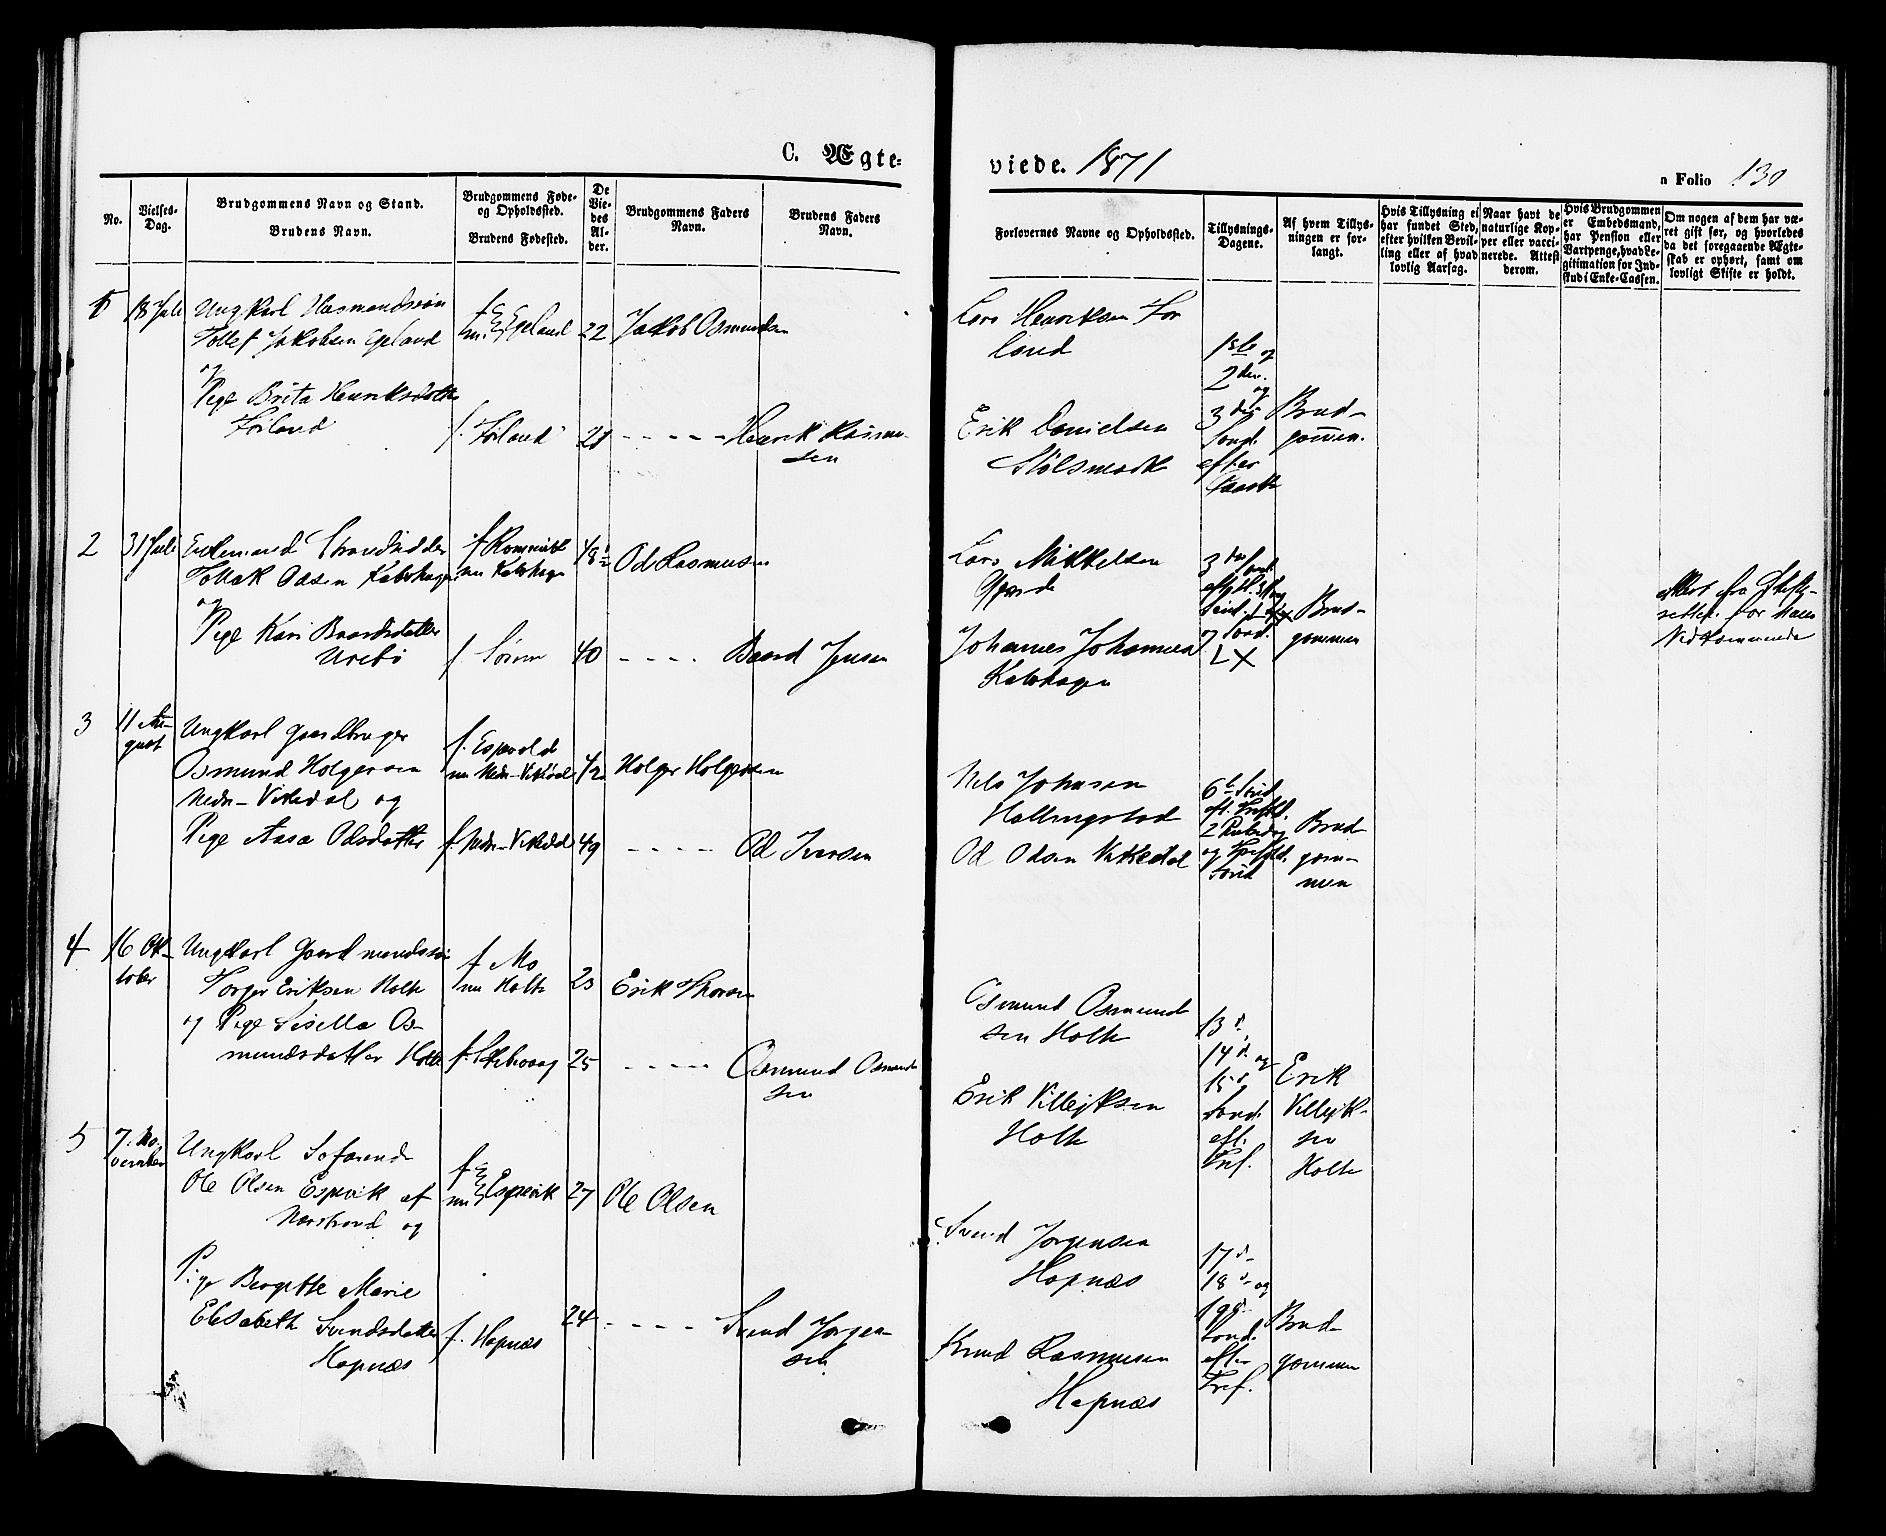 C. Ægte-
viede. 1871
Folio 130
No.
Vielses-
Dag.
Brudgommens Navn og Stand.
Brudens Navn.
Brudgommens Føde-
og Opholdssted.
Brudens Fødested.
De
Vie-
des
Al-
der.
Brudgommens Faders
Navn.
Brudens Faders
Navn.
Forlovernes Navne og Opholdssted.
Tillysnings-
Dagene.
Af hvem Tillys-
ningen er for-
langt.
Hvis Tillysning ei
har fundet Sted,
efter hvilken Bevil-
ling eller af hvad
lovlig Aarsag.
Naar havt de
naturlige Kop-
per eller vacci-
nerede. Attest
derom.
Hvis Brudgommen
er Embedsmand,
har Pension eller
Vartpenge, hvad Le-
gitimation for Ind-
skud i Enke-Cassen.
Om nogen af dem har væ-
ret gift før, og hvorledes
da det foregaaende Ægte-
skab er ophørt, samt om
lovligt Skifte er holdt.
18 Juli
Ungkarl Husmandssøn
Tollef Jakobsen Egeland
og
Pige Brita Henriksdatter
Førland
f.
nu Egeland
f. Førland
22
Jakob Osmundsen
Henrik Rasmu-
sen
Lars Henriksen Før
land
Erik Danielsen
Stølsmark
1ste og
2den
og
3die
Sond.
efter
Brud-
gommen.
2
31 Juli
Enkemand Strandsidder
Odsen
og
Pige Kari Baardsdatter
Urebø
f.
40
Od Rasmussen
Baard Jensen
Lars Mikkelsen
Johannes Johannesen
Brud-
gommen
Vedkommende
3
11 Au-
gust
Ungkarl Gaardbruger
Osmund Holgersen
Nedre-Vikedal og
Pige Aasa Odsdatter
nu Nedre-Vikedal
f. Nedre-Vikedal
42
49
Holger Holgersen
Od Iversen
Nels Johnsen
Hallingstad
Od Odsen Vikedal
Brud
gom-
men
4
16 Ok-
tober
Ungkarl Gaardmandssøn
Torger Eriksen Holte
og Pige Sisella Os-
mundsdatter Holte
f. Mo
nu Holte
23
25
Erik Thorsen
Osmund Osmund
sen
Osmund Osmund
sen Holte
Erik Villejksen
Holte
13d.
14d. og
15d.
Sond.
eft.
Tref.
Erik
Villejk-
sen
Holte
5
7. No-
vember
Ungkarl
Ole Olsen Espevik af
Nærstrand og
Pige Birgitte Marie
Elisabeth Svendsdatter
Hapnæs
f.
nu Espevik
f. Hapnæs
27
24
Ole Olsen
Svend Jørgen-
sen
Svend Jørgensen
Hapnæs
Knud Rasmussen
Hapnæs
17d.
18d. og
19d.
Sond.
efter
Tref.
Brud-
gommen